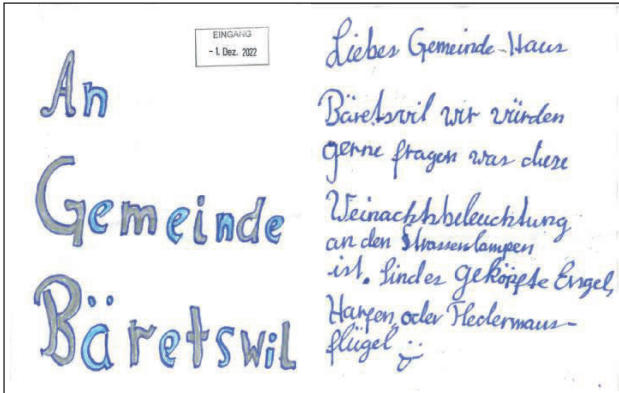 An
Gemeinde
Bäretswil
EINGANG
- 1. Dez. 2022
Liebes Gemeinde-Haus
Bäretswil wir würden
gerne fragen was diese
Weinachtsbeleuchtung
an den Strassenlampen
ist. Sind es geköpfte Engel,
Harfen, oder Fledermaus-
flügel